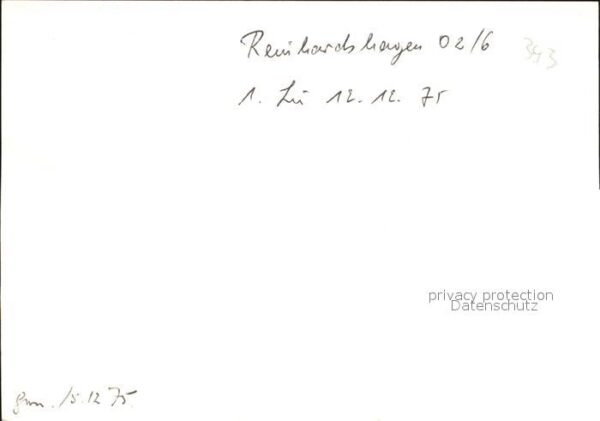 Reinhardshagen 02/6 343
1. Li 12.12.75
privacy protection
Datenschutz
gem. 15.12.75.